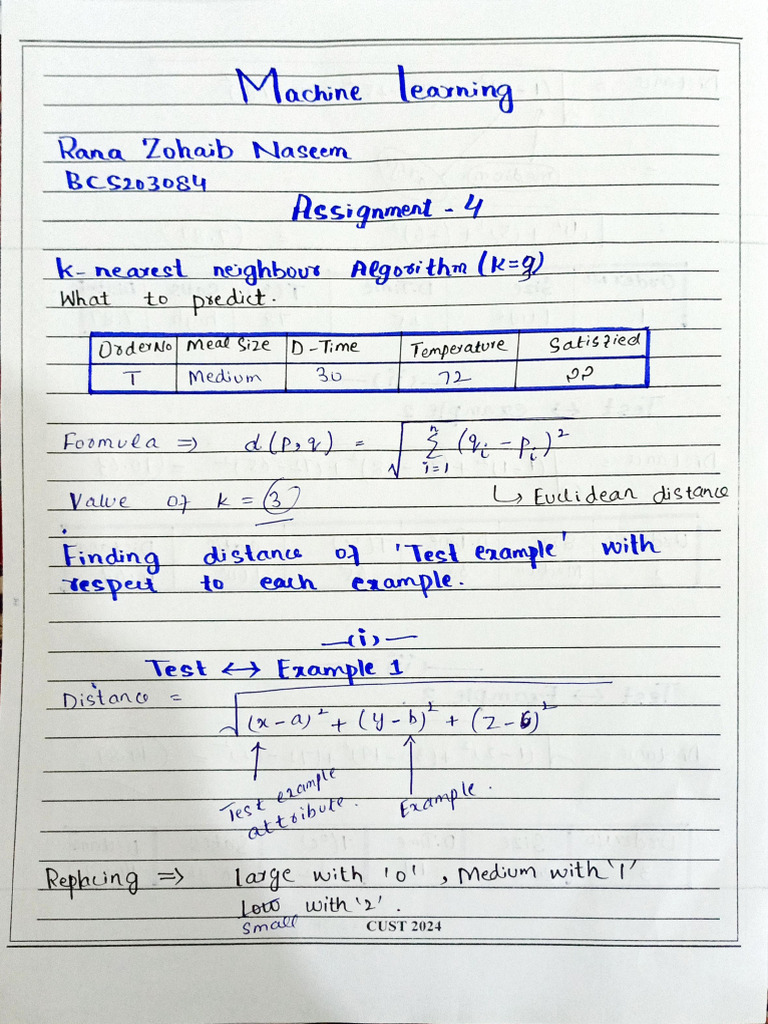 Machine Learning
Rana Zohaib Naseem
BCS203084
Assignment - 4
k-nearest neighbour Algorithm (k=3)
What to predict.
OrderNo Meal Size D-Time Temperature Satisfied
T Medium 30 72 ??
Formula ⇒ d(p,q) = √ Σ i=1 n (qi - pi)²
Value of k = 3 ↳ Euclidean distance
Finding distance of 'Test example' with
respect to each example.
—(i)—
Test ↔ Example 1
Distance = √ (x-a)² + (y-b)² + (z-c)²
Test example
attribute.
Example.
Replacing ⇒ Large with '0', Medium with '1'
Low with '2'.
Small
CUST 2024